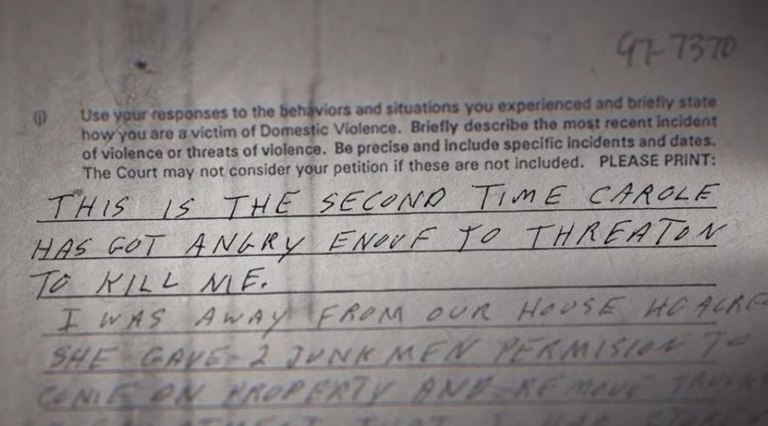 97-7370
(i) Use your responses to the behaviors and situations you experienced and briefly state
how you are a victim of Domestic Violence. Briefly describe the most recent incident
of violence or threats of violence. Be precise and include specific incidents and dates.
The Court may not consider your petition if these are not included. PLEASE PRINT:
THIS IS THE SECOND TIME CAROLE
HAS GOT ANGRY ENOUF TO THREATON
TO KILL ME.
I WAS AWAY FROM OUR HOUSE
SHE GAVE 2 JUNK MEN PERMISION TO
COME ON PROPERTY AND REMOVE TRUCKS
THAT I HAD